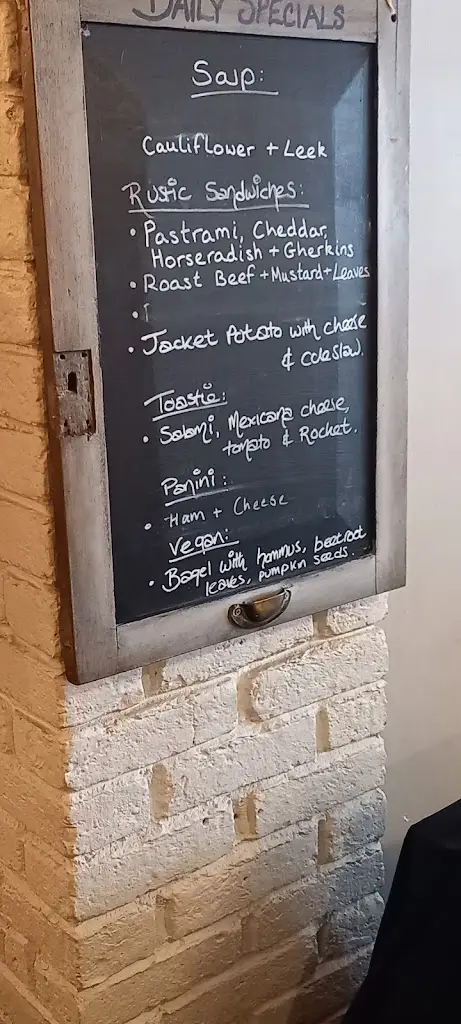 DAILY SPECIALS
Soup:
Cauliflower + Leek
Rustic Sandwiches:
• Pastrami, Cheddar,
Horseradish + Gherkins
• Roast Beef + Mustard + Leaves
•
• Jacket Potato with cheese
& Coleslaw.
Toastie:
• Salami, Mexicana cheese,
tomato & Rocket.
Panini:
• Ham + Cheese
Vegan:
• Bagel with hommus, beetroot
leaves, pumpkin seeds.